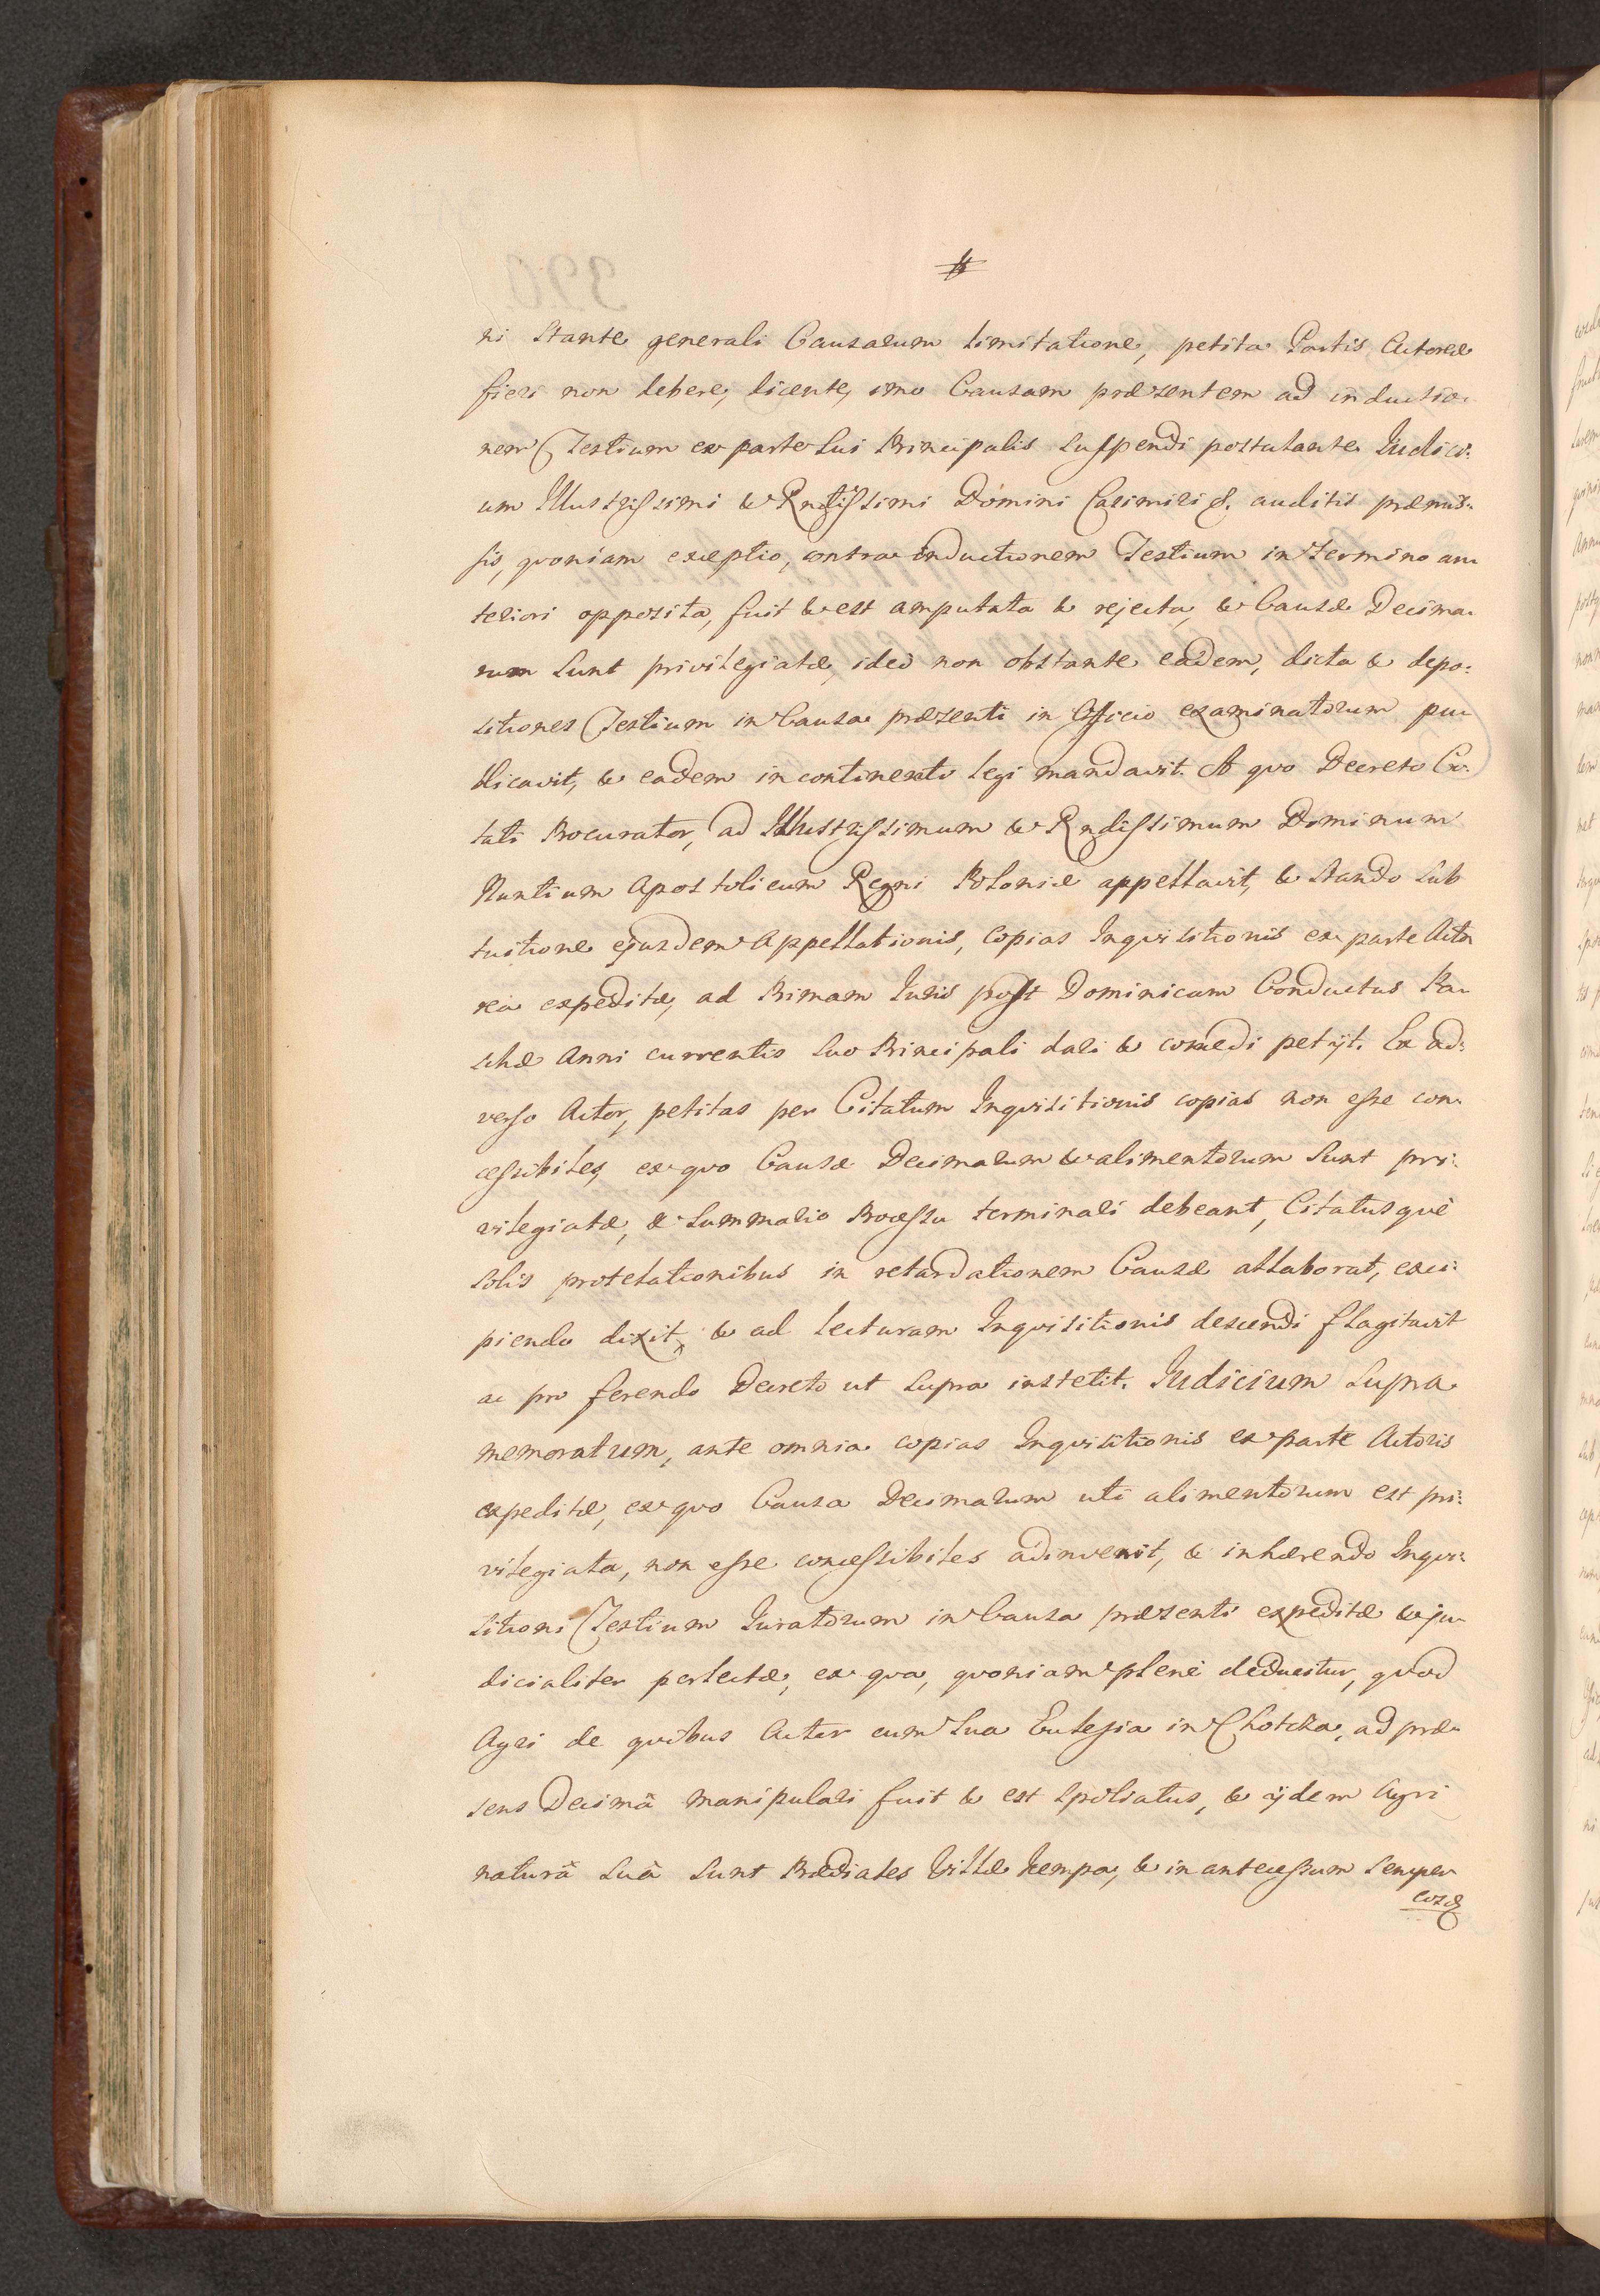 ri stante generali Causarum limitatione, petita Partis Actoreæ
fieri non debere, dicente, imo Causam præsentem ad inductio:
nem Testium ex parte sui Principalis suspendi postulante. Iudici:
um Illustrissimi & Rndissimi Domini Casimiri &. auditis præmis:
sis, qvoniam exceptio, contra inductionem Testium in Termino an:
teriori opposita, fuit & est amputata & rejecta, & Causæ Decima:
rum sunt privilegiatæ, ideo non obstante eadem, dicta & depo:
sitiones Testium in Causa præsenti in Officio examinatorum pu:
blicavit, & eadem in continenti legi mandavit. A qvo Decreto Ci:
tati Procurator, ad Illustrissimum & Rndissimum Dominum
Nuntium Apostolicum Regni Poloniæ appellavit, & stando sub
tuitione ejusdem Appellationis, copias Inqvisitionis ex parte Acto
rea expeditæ, ad Primam Iuris post Dominicam Conductus Pa:
schæ Anni currentis suo Principali dari & concedi petijt. Ex ad:
verso Actor, petitas per Citatum Inqvisitionis copias non esse con:
cessibiles, ex qvo Causæ Decimarum & alimentorum sunt pri:
vilegiatæ, & summario Processu terminari debeant, Citatusquè
solis protelationibus in retardationem Causæ allaborat, exci:
piendo dixit, & ad lecturam Inqvisitionis descendi flagitavit
ac pro ferendo Decreto ut supra institit. Iudicium supra
memoratum, ante omnia copias Inqvisitionis ex parte Actoris
expeditæ, ex qvo Causa Decimarum uti alimentorum est pri:
vilegiata, non esse concessibiles adinvenit, & inhærendo Inqvi:
sitioni Testium Iuratorum in Causa præsenti expeditæ & ju:
dicialiter perlectæ, ex qva, qvoniam plenè deducitur, qvod
Agri de qvibus Actor cum sua Ecclesia in Chotcza, ad præ:
sens Decimâ manipulari fuit & est spoliatus, & ijdem Agri
naturâ suâ sunt Prædiales Villæ Kempa, & in antecessum semper